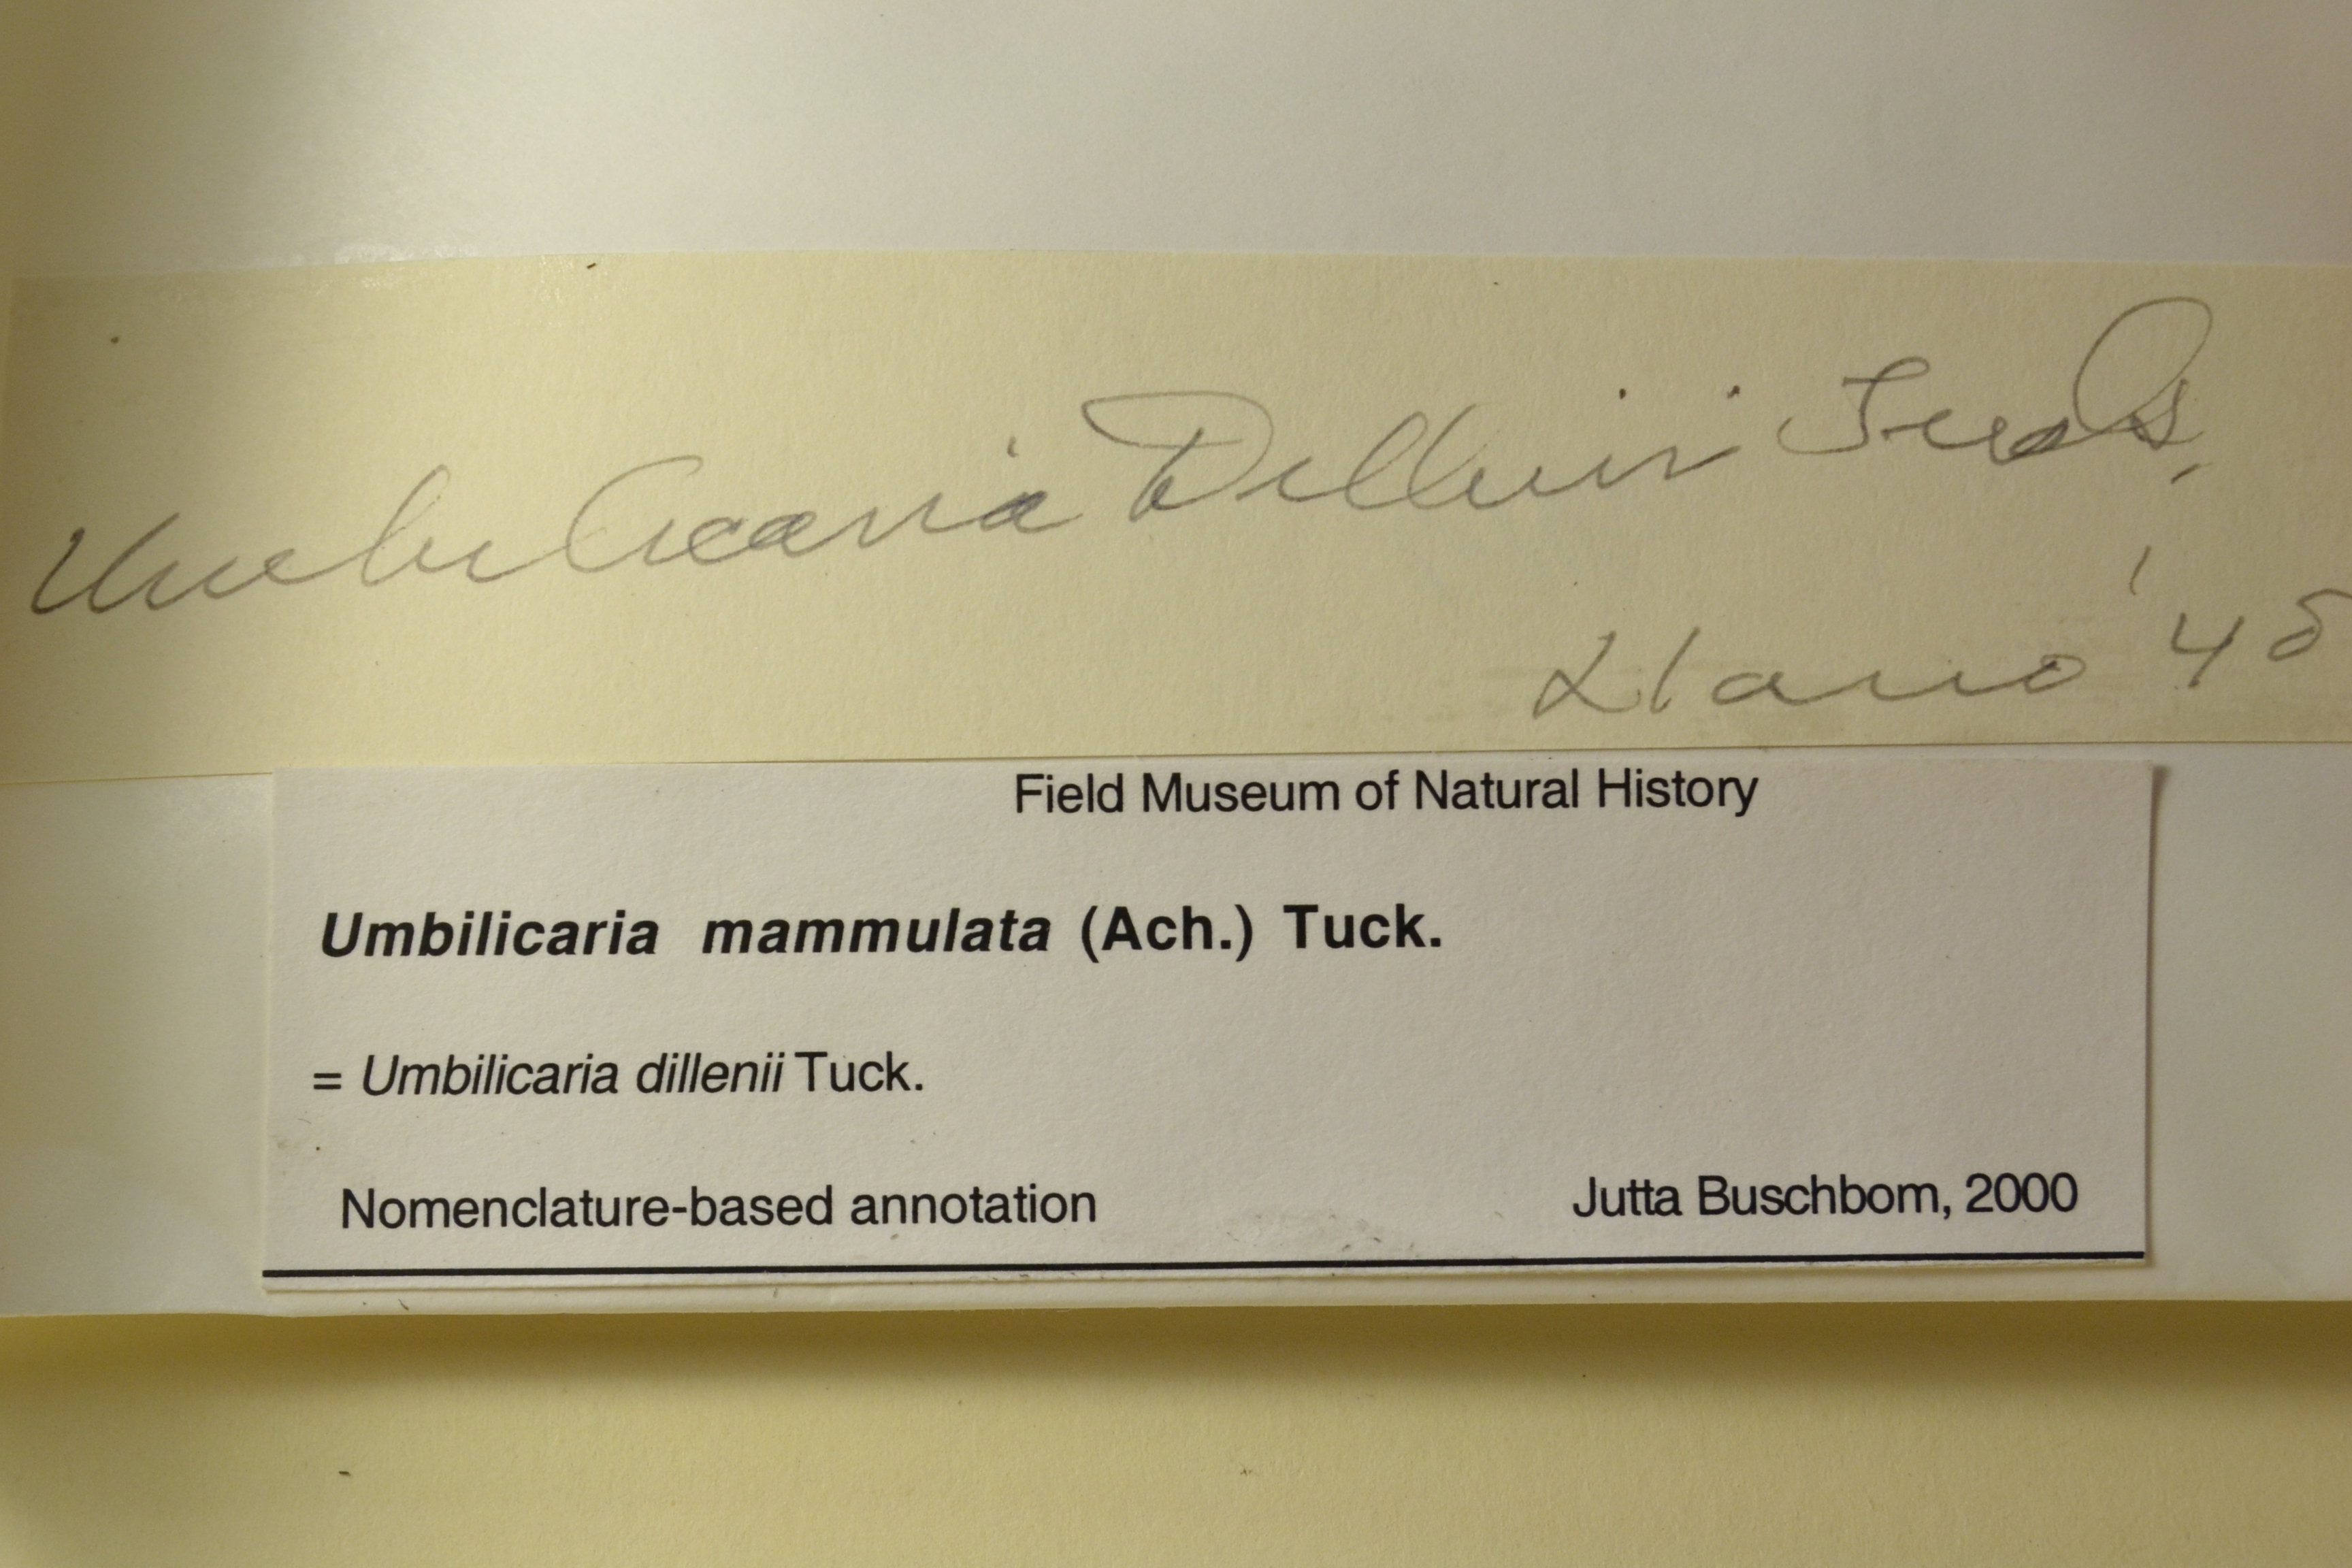 Umbilicaria Dillenii Tuck.
Llano '48
Field Museum of Natural History
Umbilicaria mammulata (Ach.) Tuck.
= Umbilicaria dillenii Tuck.
Nomenclature-based annotation Jutta Buschbom, 2000